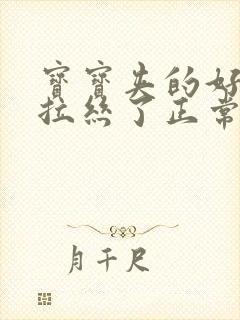 寶寶夹的好
拉絲了正常
月千尺